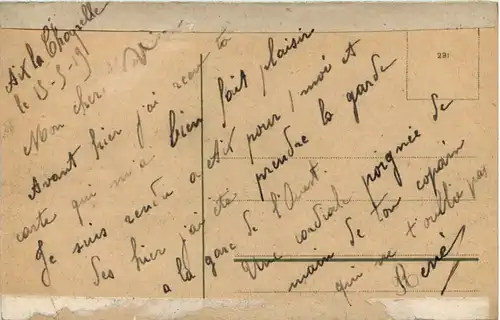 Aix la Chapelle
le 15-5-19
Mon cher
Avant hier j'ai reçu ta
carte qui m'a bien fait plaisir
Je suis rendu a Aix pour 1 moi et
des hier j'ai été prendre la garde
a la gare de l'Ouest.
Une cordiale poignée de
main de ton copain
qui ne t'oublie pas
René
231